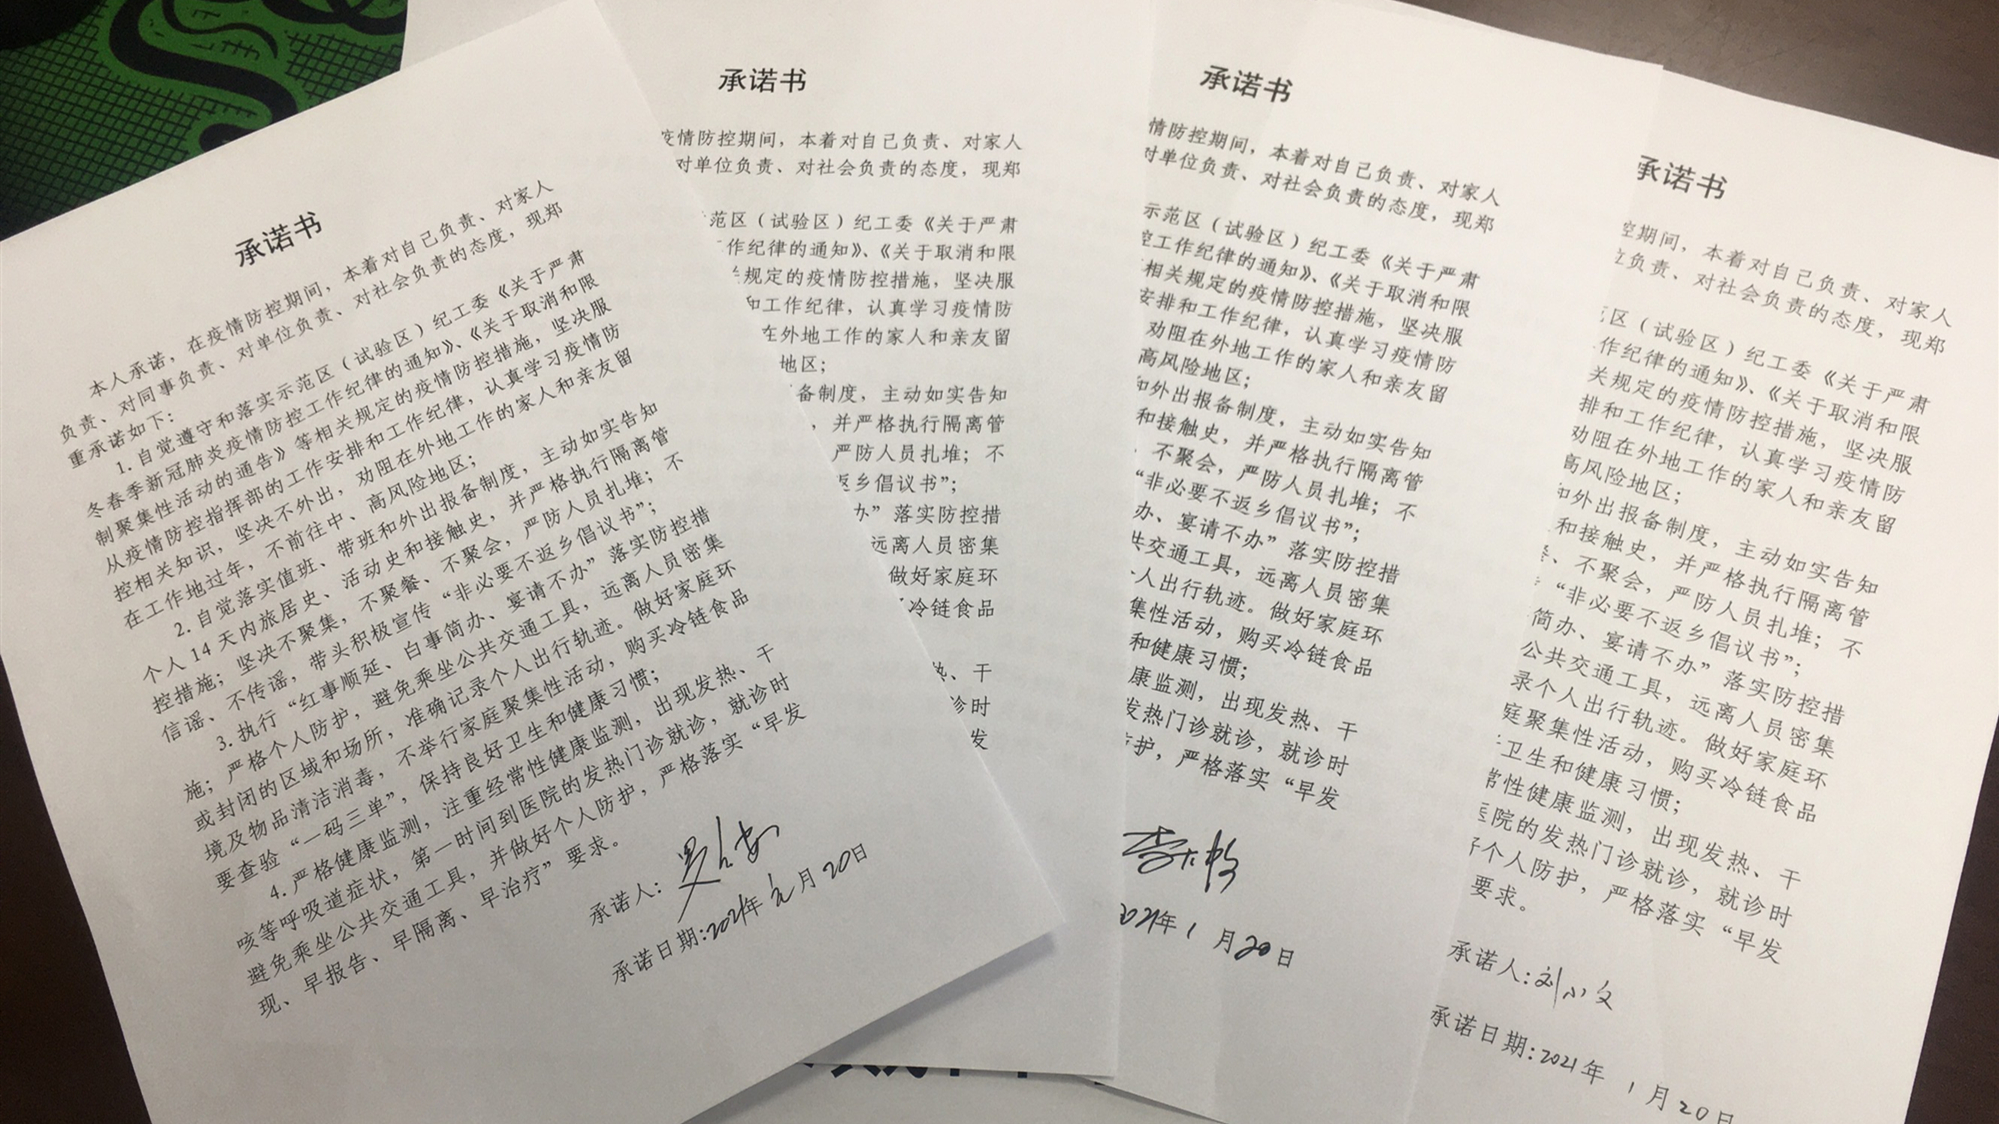 承诺书
本人承诺，在疫情防控期间，本着对自己负责、对家人
负责、对同事负责、对单位负责、对社会负责的态度，现郑
重承诺如下：
1. 自觉遵守和落实示范区（试验区）纪工委《关于严肃
冬春季新冠肺炎疫情防控工作纪律的通知》、《关于取消和限
制聚集性活动的通告》等相关规定的疫情防控措施，坚决服
从疫情防控指挥部的工作安排和工作纪律，认真学习疫情防
控相关知识，坚决不外出，劝阻在外地工作的家人和亲友留
在工作地过年，不前往中、高风险地区；
2. 自觉落实值班、带班和外出报备制度，主动如实告知
个人14天内旅居史、活动史和接触史，并严格执行隔离管
控措施；坚决不聚集，不聚餐、不聚会，严防人员扎堆；不
信谣、不传谣，带头积极宣传“非必要不返乡倡议书”；
3. 执行“红事顺延、白事简办、宴请不办”落实防控措
施；严格个人防护，避免乘坐公共交通工具，远离人员密集
或封闭的区域和场所，准确记录个人出行轨迹。做好家庭环
境及物品清洁消毒，不举行家庭聚集性活动，购买冷链食品
要查验“一码三单”，保持良好卫生和健康习惯；
4. 严格健康监测，注重经常性健康监测，出现发热、干
咳等呼吸道症状，第一时间到医院的发热门诊就诊，就诊时
避免乘坐公共交通工具，并做好个人防护，严格落实“早发
现、早报告、早隔离、早治疗”要求。
承诺人：
承诺日期：2021年元月20日
承诺书
疫情防控期间，本着对自己负责、对家人
对单位负责、对社会负责的态度，现郑
范区（试验区）纪工委《关于严肃
工作纪律的通知》、《关于取消和限
关规定的疫情防控措施，坚决服
和工作纪律，认真学习疫情防
在外地工作的家人和亲友留
地区；
备制度，主动如实告知
，并严格执行隔离管
严防人员扎堆；不
返乡倡议书”；
办”落实防控措
远离人员密集
做好家庭环
冷链食品
、干
诊时
发
承诺书
情防控期间，本着对自己负责、对家人
对单位负责、对社会负责的态度，现郑
示范区（试验区）纪工委《关于严肃
控工作纪律的通知》、《关于取消和限
相关规定的疫情防控措施，坚决服
安排和工作纪律，认真学习疫情防
劝阻在外地工作的家人和亲友留
高风险地区；
和外出报备制度，主动如实告知
和接触史，并严格执行隔离管
、不聚会，严防人员扎堆；不
“非必要不返乡倡议书”；
办、宴请不办”落实防控措
共交通工具，远离人员密集
个人出行轨迹。做好家庭环
集性活动，购买冷链食品
和健康习惯；
康监测，出现发热、干
发热门诊就诊，就诊时
防护，严格落实“早发
2021年1月20日
承诺书
控期间，本着对自己负责、对家人
位负责、对社会负责的态度，现郑
区（试验区）纪工委《关于严肃
作纪律的通知》、《关于取消和限
关规定的疫情防控措施，坚决服
排和工作纪律，认真学习疫情防
劝阻在外地工作的家人和亲友留
高风险地区；
和外出报备制度，主动如实告知
和接触史，并严格执行隔离管
、不聚会，严防人员扎堆；不
“非必要不返乡倡议书”；
简办、宴请不办”落实防控措
公共交通工具，远离人员密集
录个人出行轨迹。做好家庭环
庭聚集性活动，购买冷链食品
卫生和健康习惯；
常性健康监测，出现发热、干
医院的发热门诊就诊，就诊时
好个人防护，严格落实“早发
要求。
承诺人：刘小文
承诺日期：2021年1月20日